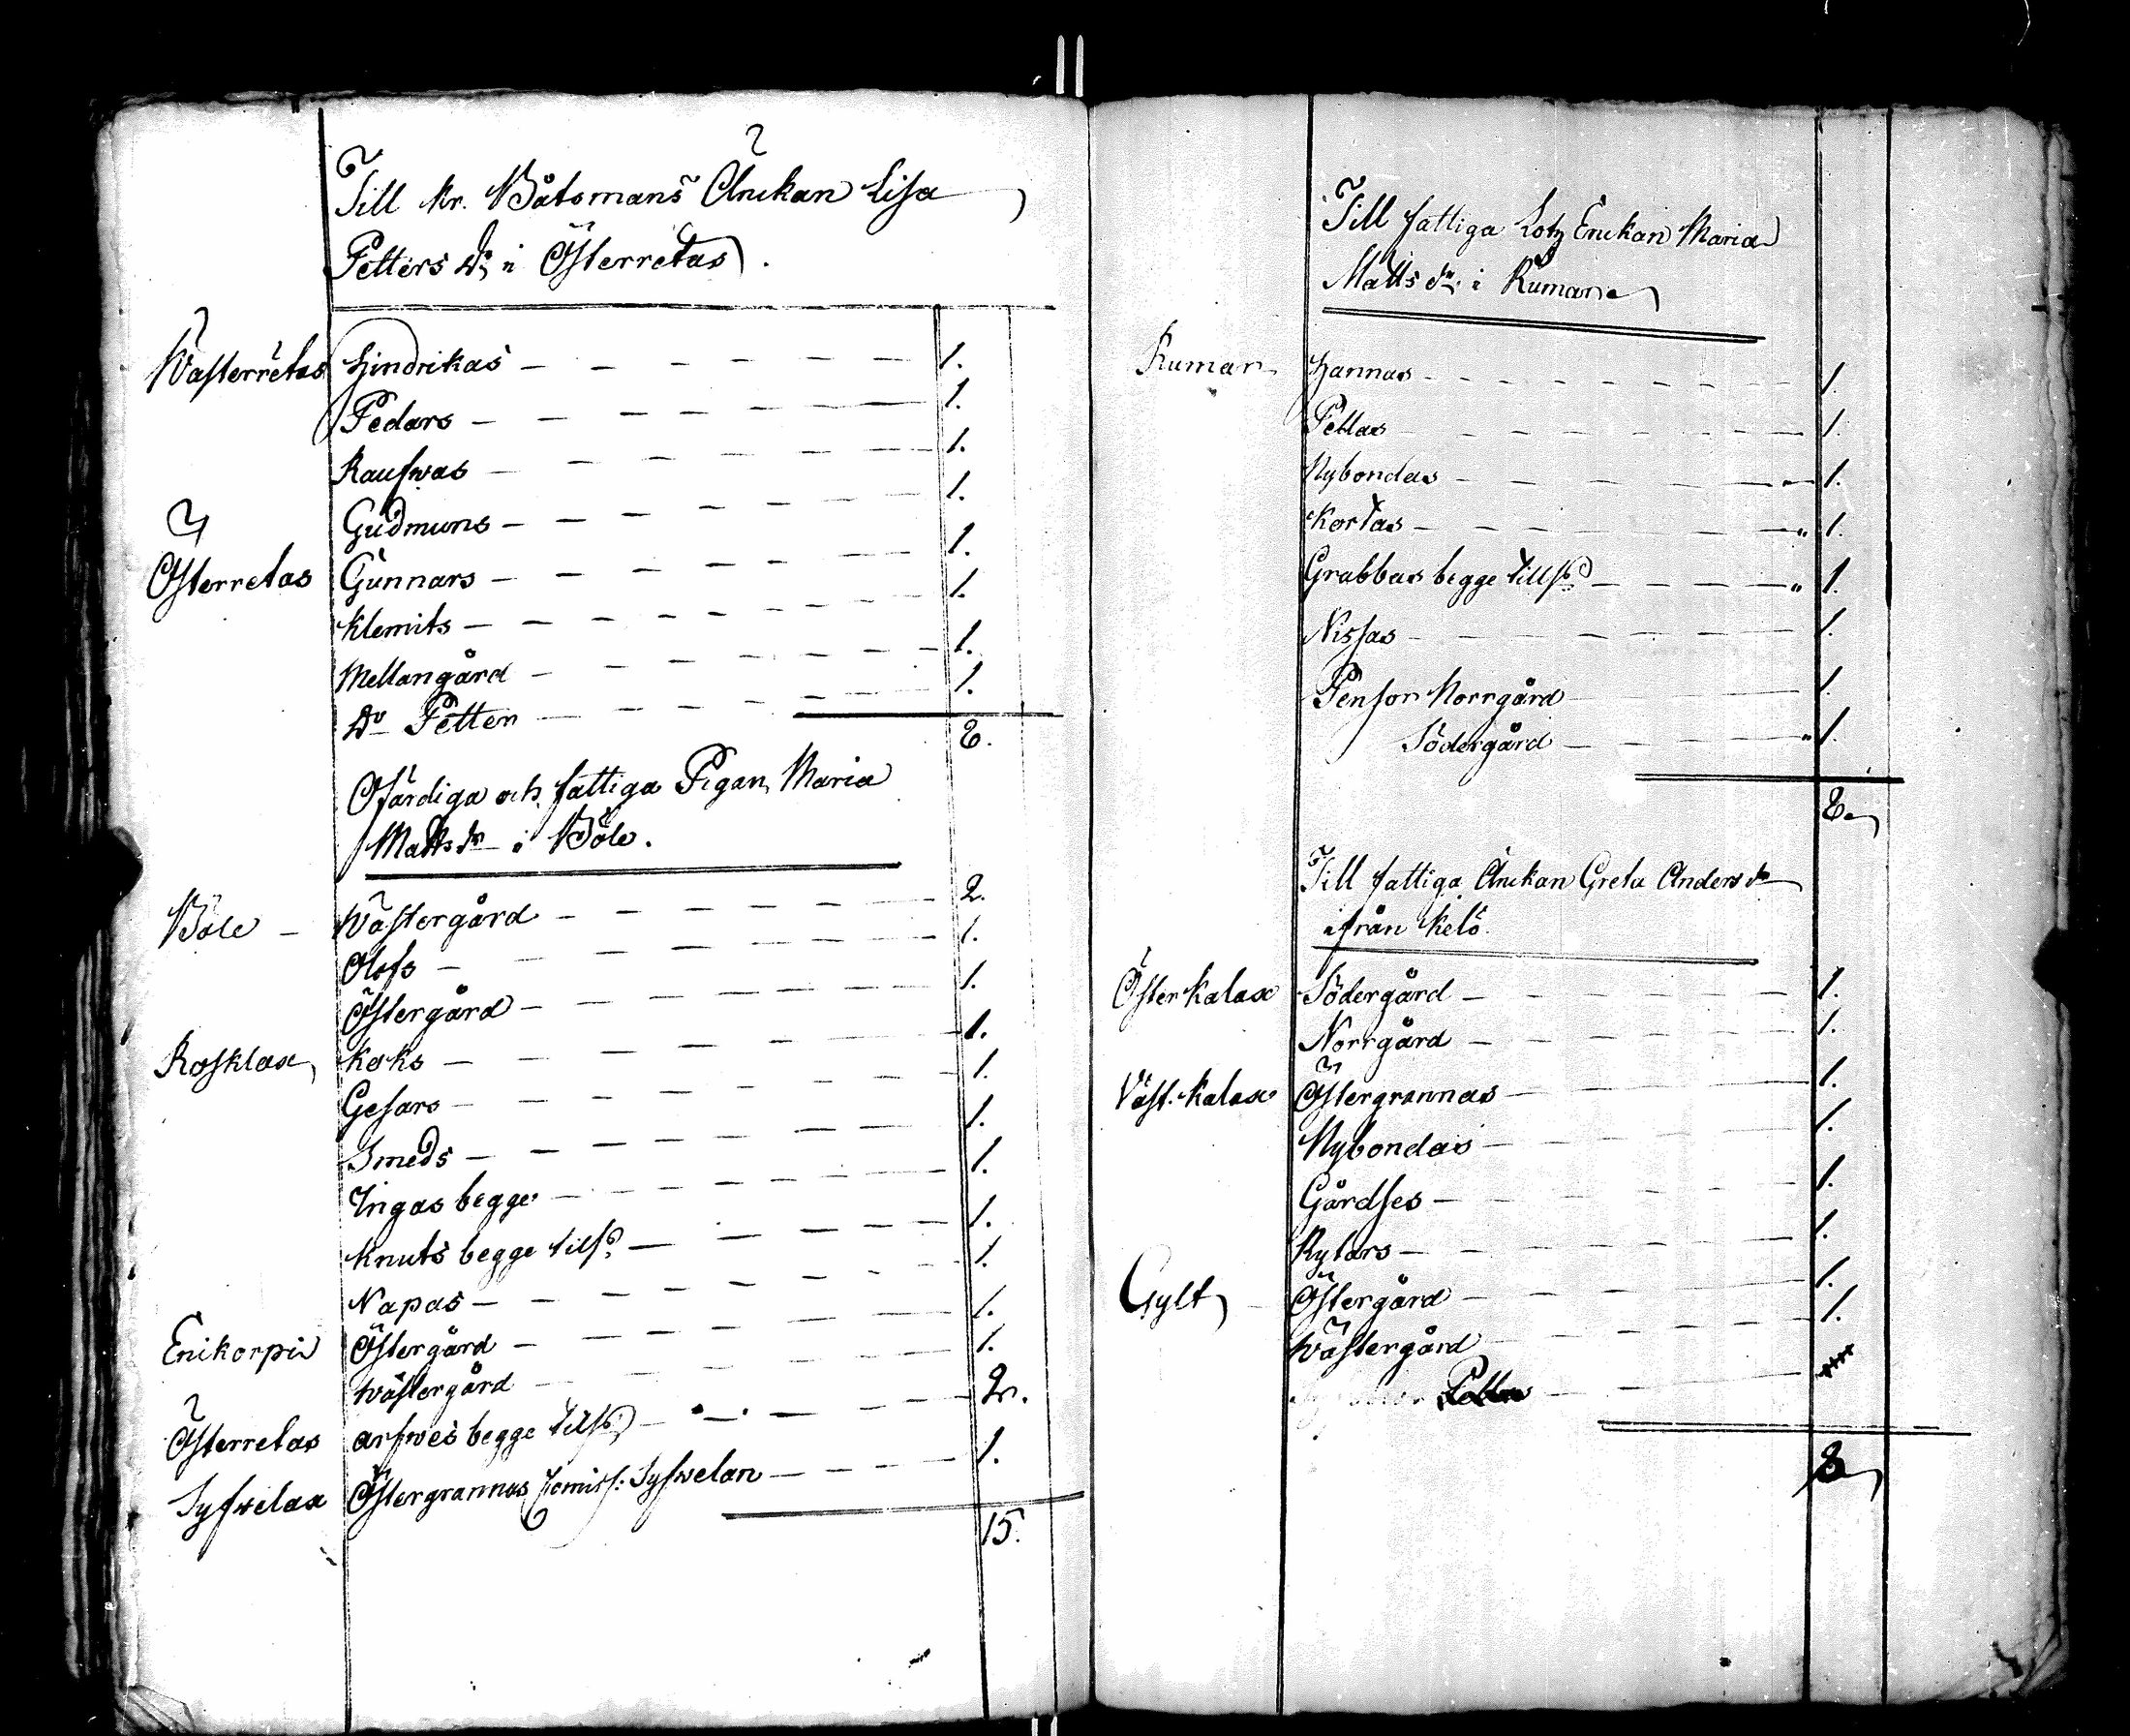 Till Kr. Båtsmans Änckan Lisa
Petters Dr i Österretas.
Wästerretas Hindrikas — 1.
Pedars — 1.
Raufwas — 1.
Gudmuns — 1.
Österretas Gunnars — 1.
Klemits — 1.
Mellangård — 1.
Do Petter — 1.
8.
Ofärdiga och fattiga Pigan Maria
Matts dr i Böle.
Böle — Wästergård — 2.
Olofs — 1.
Östergård — 1.
Rosklax Koks — 1.
Gesars — 1.
Smeds — 1.
Ingas begge — 1.
Knuts begge tills. — 1.
Napas — 1.
Enikorpi Östergård — 1.
Wästergård — 1.
Österretas Arfwes begge tills. — 2.
Syfwelax Östergrannas Comiss: Syfwelan — 1.
15.
Till fattiga Lotz Enckan Maria
Matts dr. i Rumar
Rumar Hannas — 1.
Pellas — 1.
Nybondas — 1.
Kortas — 1.
Grabbas begge tills. — 1.
Nissas — 1.
Pensor Norrgård — 1.
Södergård — 1.
8.
Till fattiga Änckan Greta Anders dr
ifrån Kelö.
Öster Kalax Södergård — 1.
Norrgård — 1.
Väst. Kalax Östergrannas — 1.
Nybondas — 1.
Gårdses — 1.
Rylars — 1.
Gylt Östergård — 1.
Wästergård — 1.
8